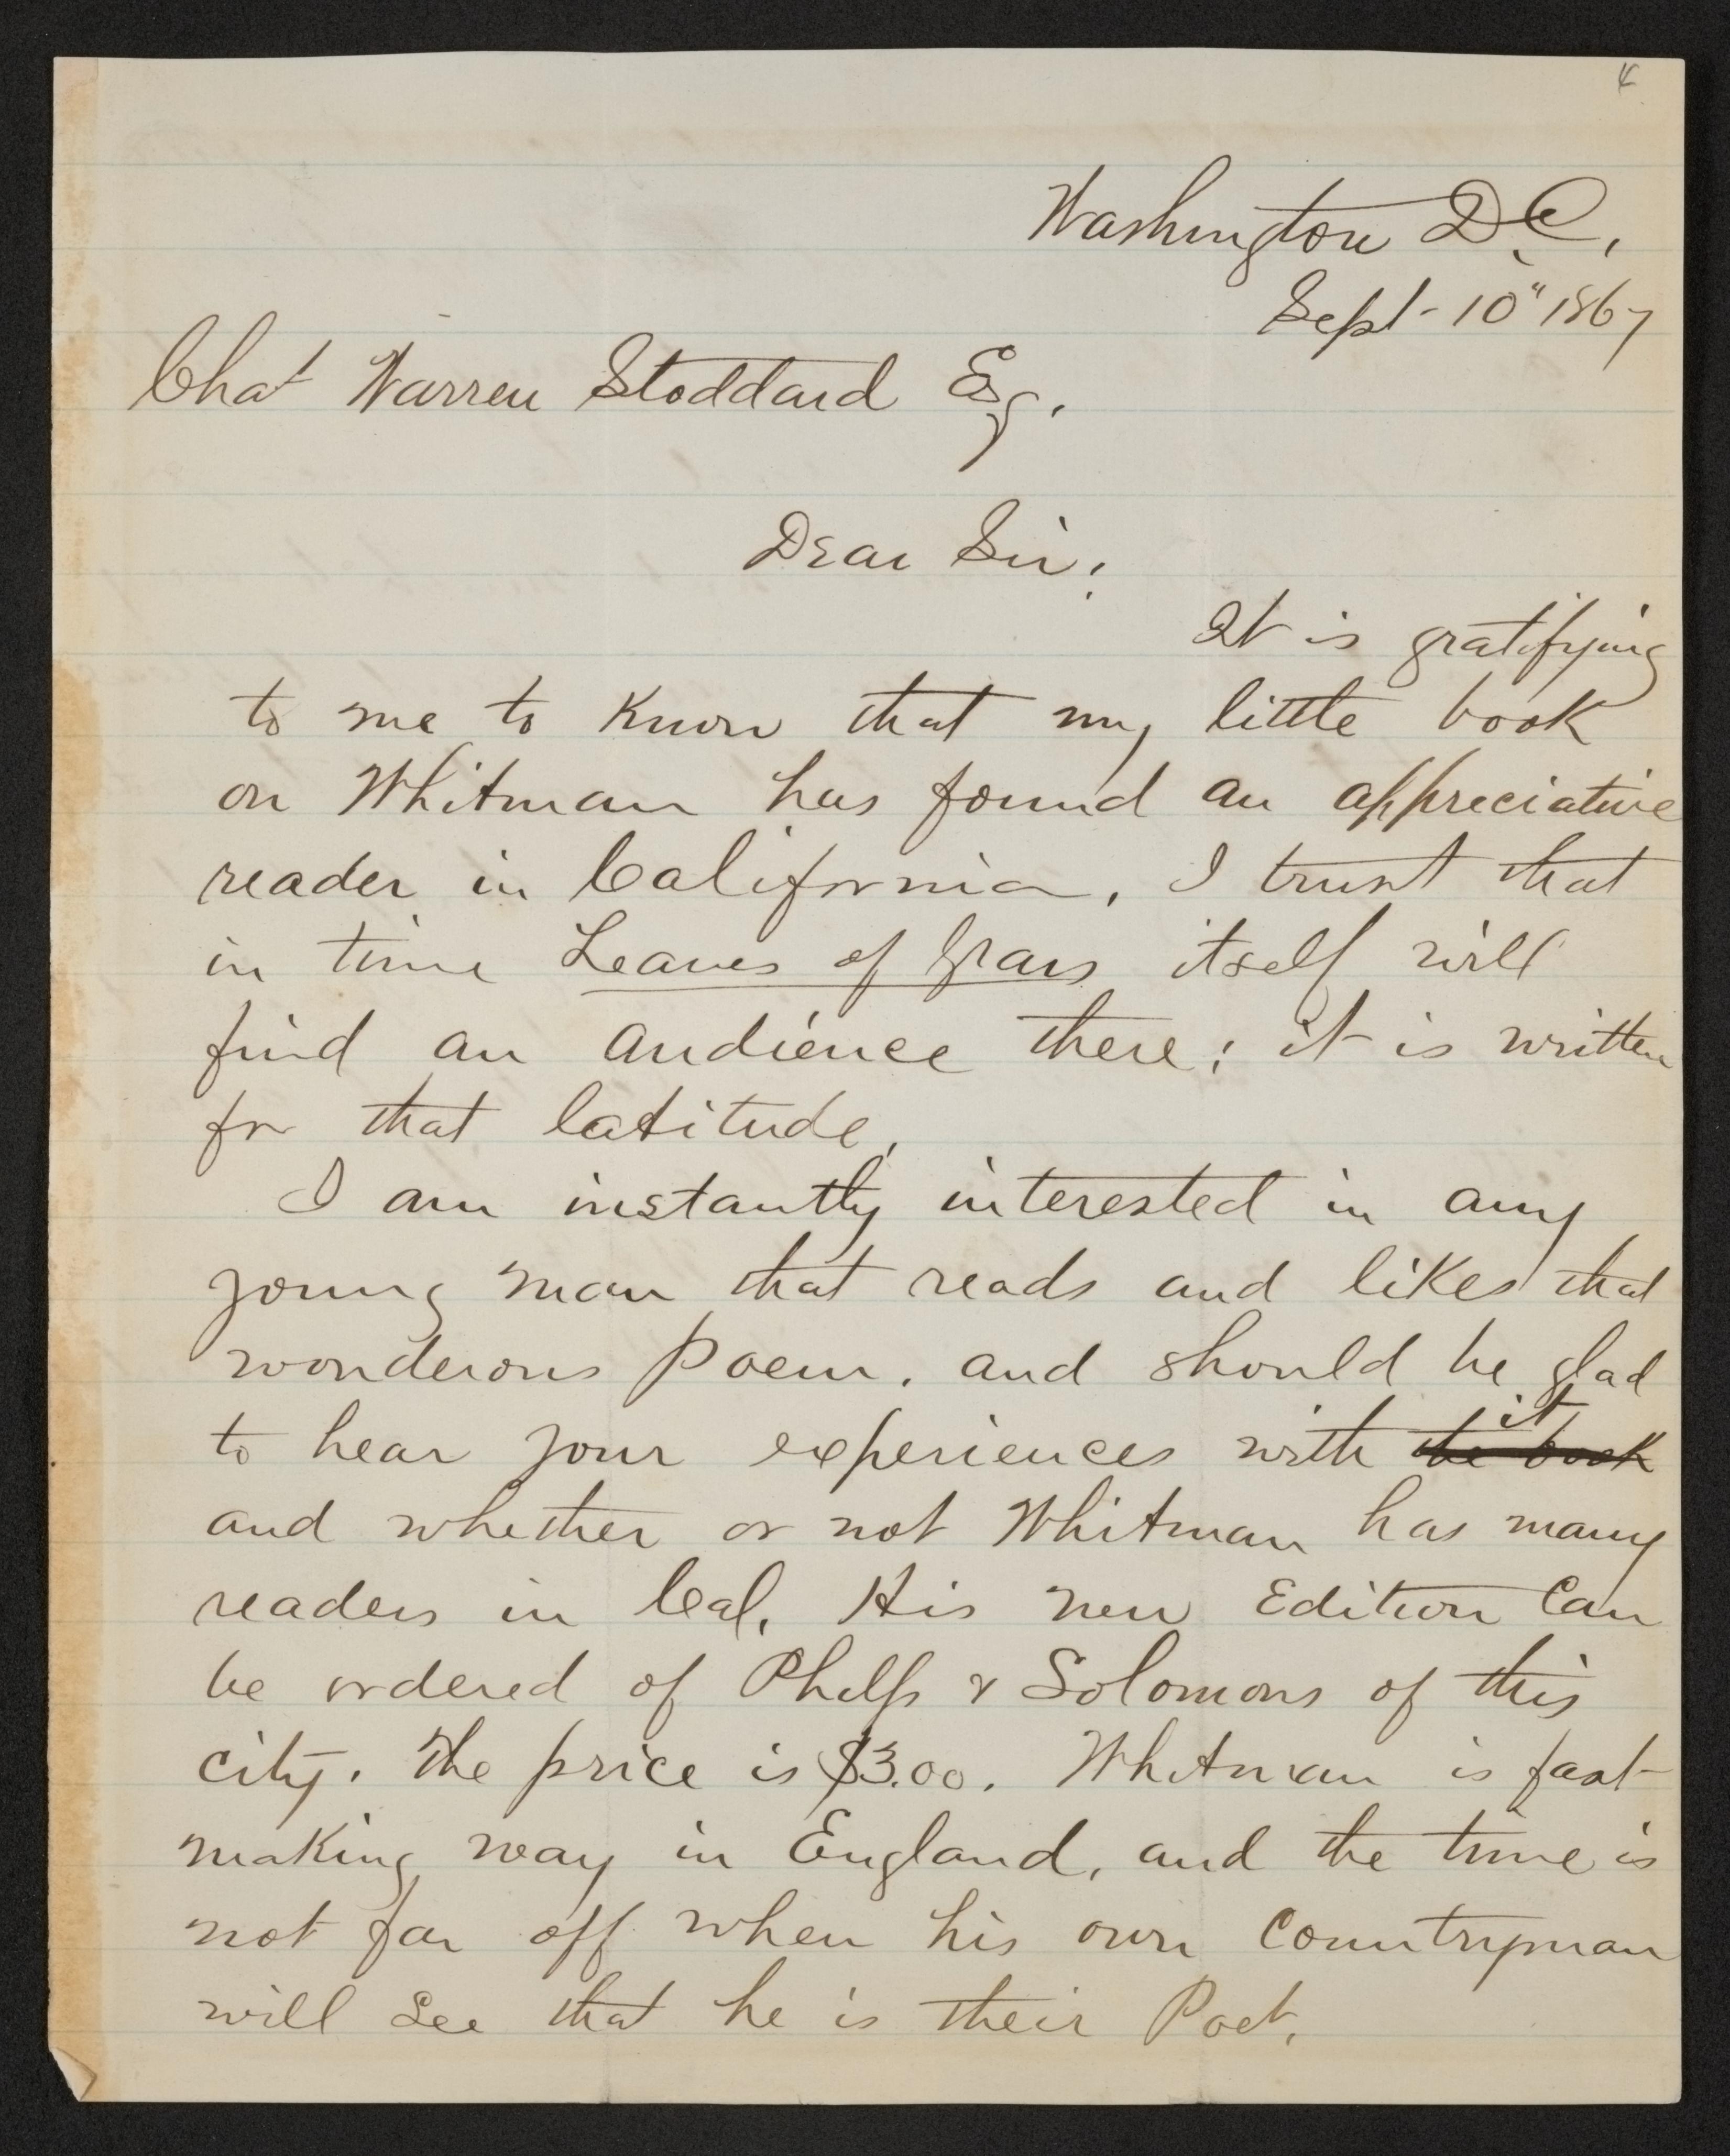 Washington D.C.
Sept- 10" 1867
Chas Warren Stoddard Esq.
Dear Sir;
It is gratifying
to me to know that my little book
on Whitman has found an appreciative
reader in California. I trust that
in time Leaves of Grass itself will
find an audience there; it is written
for that latitude.
I am instantly interested in any
young man that reads and likes that
wonderous Poem, and should be glad
it
to hear your experiences with the book
and whether or not Whitman has many
readers in Cal. His new Edition can
be ordered of Philp & Solomons of this
city. The price is $3.00. Whitman is fast
making way in England, and the time is
not far off when his own Countryman
will see that he is their Poet.